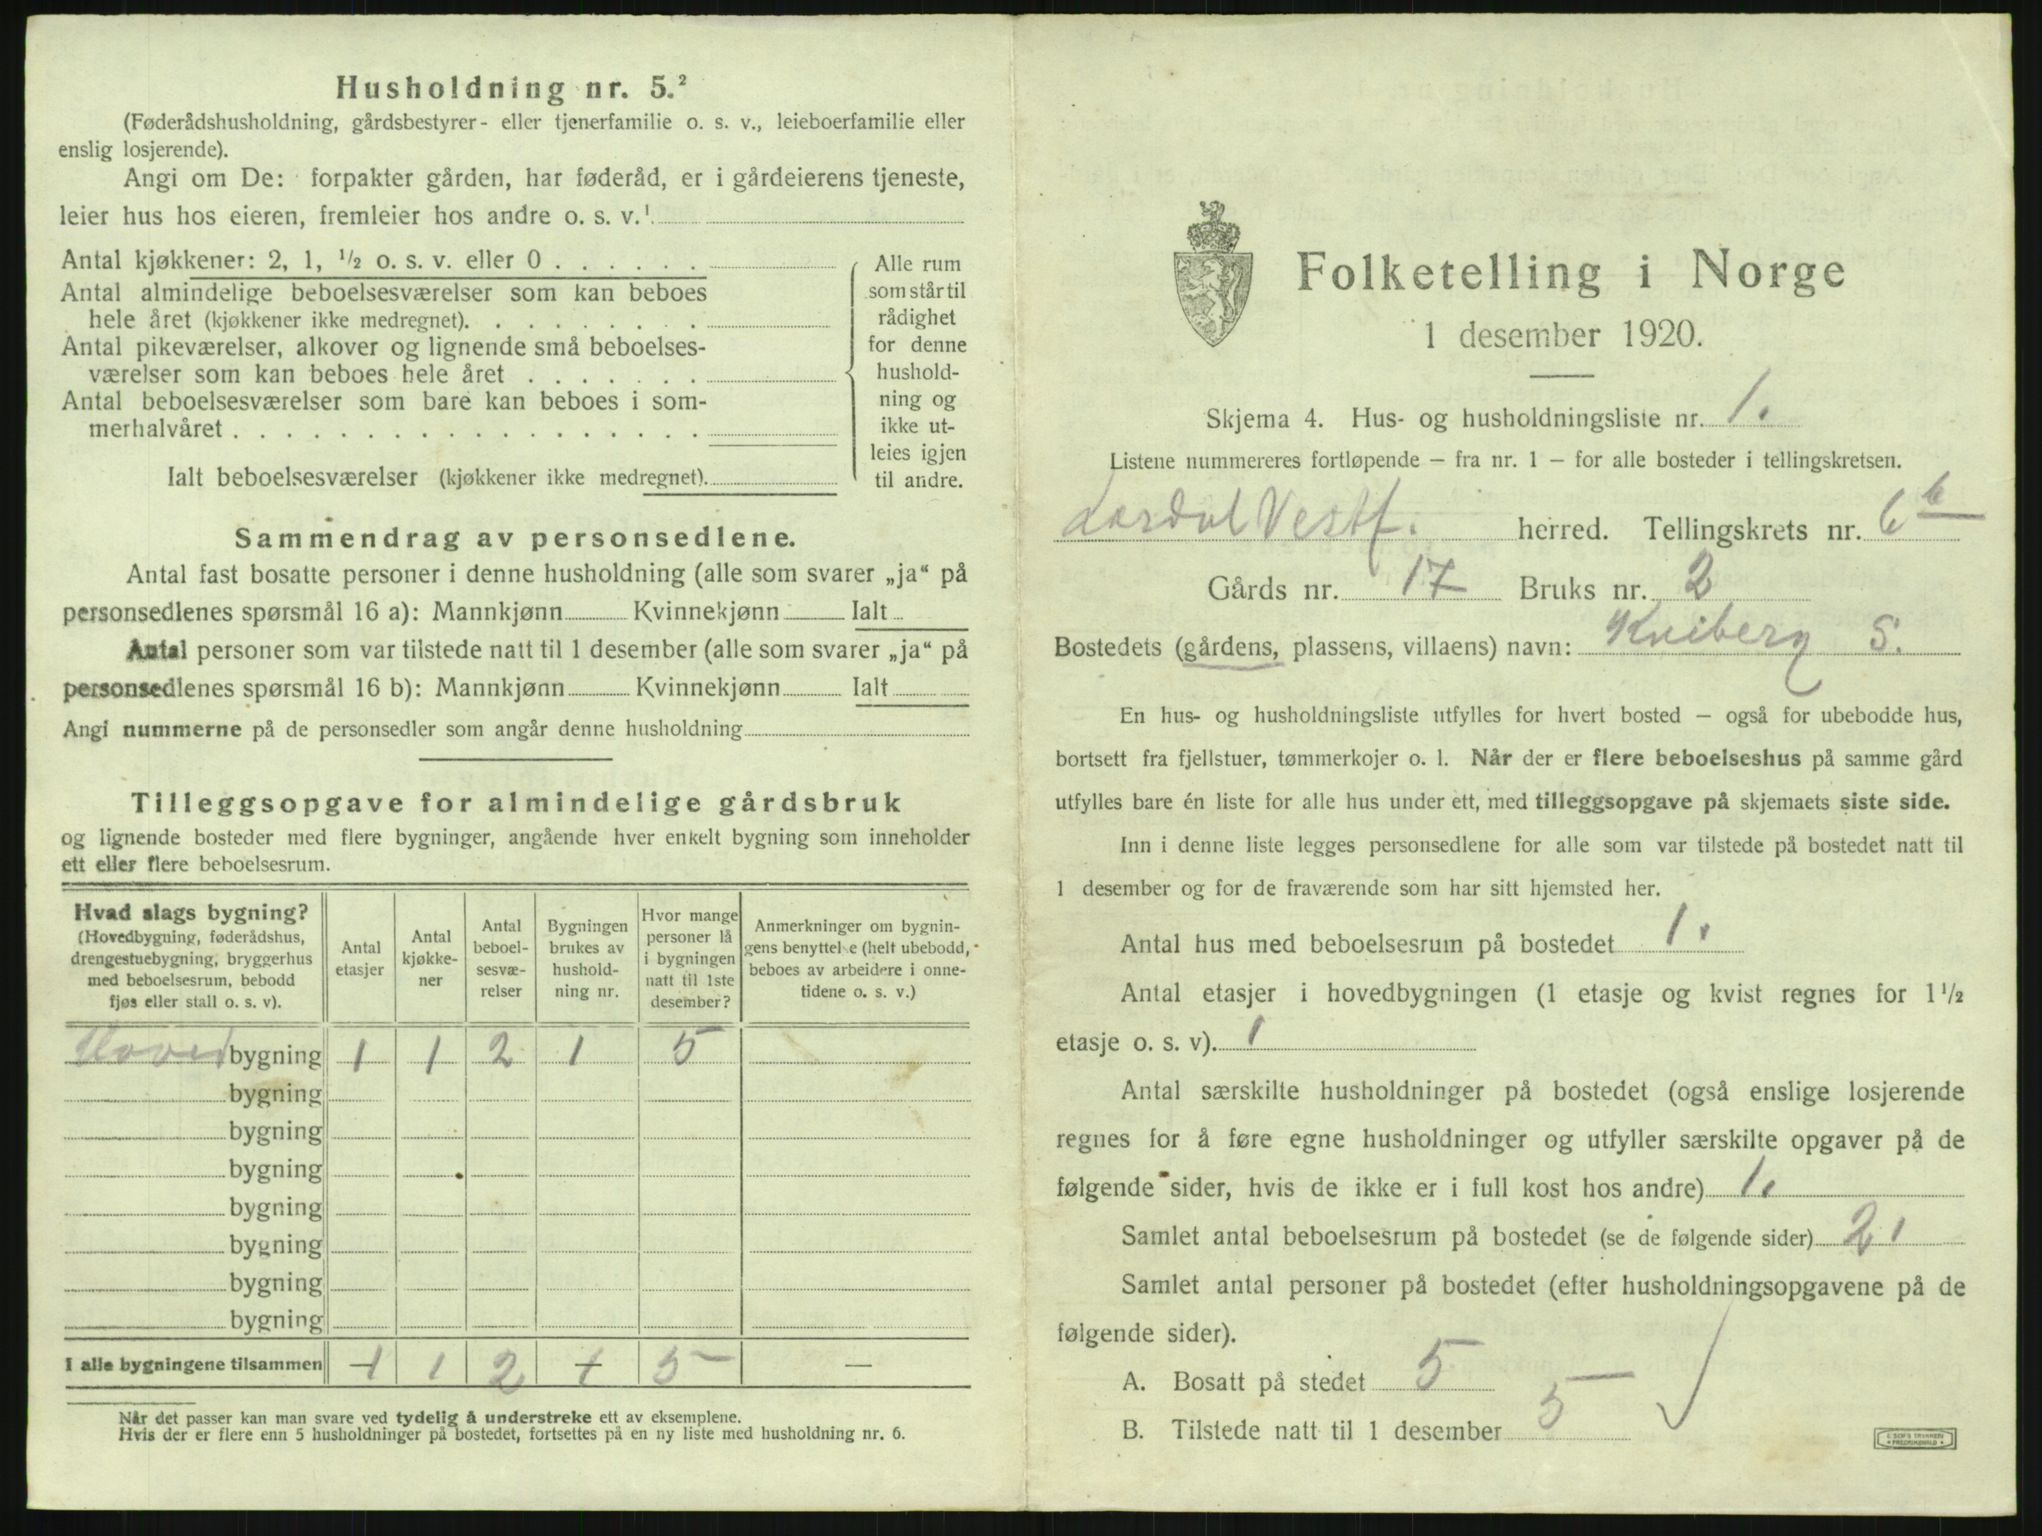 Husholdning nr. 5.²
(Føderådshusholdning, gårdsbestyrer- eller tjenerfamilie o. s. v., leieboerfamilie eller
enslig losjerende).
Angi om De: forpakter gården, har føderåd, er i gårdeierens tjeneste,
leier hus hos eieren, fremleier hos andre o. s. v.¹
Antal kjøkkener: 2, 1, ½ o. s. v. eller 0 . . . . . .
Antal almindelige beboelsesværelser som kan beboes
hele året (kjøkkener ikke medregnet). . . . . . . . .
Antal pikeværelser, alkover og lignende små beboelses-
værelser som kan beboes hele året . . . . . . .
Antal beboelsesværelser som bare kan beboes i som-
merhalvåret . . . . . . . . . . . . . . . . . .
Ialt beboelsesværelser (kjøkkener ikke medregnet).
Alle rum
som står til
rådighet
for denne
hushold-
ning og
ikke ut-
leies igjen
til andre.
Sammendrag av personsedlene.
Antal fast bosatte personer i denne husholdning (alle som svarer „ja“ på
personsedlenes spørsmål 16 a): Mannkjønn Kvinnekjønn Ialt
Antal personer som var tilstede natt til 1 desember (alle som svarer „ja“ på
personsedlenes spørsmål 16 b): Mannkjønn Kvinnekjønn Ialt
Angi nummerne på de personsedler som angår denne husholdning
Tilleggsopgave for almindelige gårdsbruk
og lignende bosteder med flere bygninger, angående hver enkelt bygning som inneholder
ett eller flere beboelsesrum.
Hvad slags bygning?
(Hovedbygning, føderådshus,
drengestuebygning, bryggerhus
med beboelsesrum, bebodd
fjøs eller stall o. s. v).
Antal
etasjer
Antal
kjøkke-
ner
Antal
beboel-
sesvæ-
relser
Bygningen
brukes av
hushold-
ning nr.
Hvor mange
personer lå
i bygningen
natt til 1ste
desember?
Anmerkninger om bygnin-
gens benyttelse (helt ubebodd,
beboes av arbeidere i onne-
tidene o. s. v.)
Hovedbygning 1 1 2 1 5
bygning
bygning
bygning
bygning
bygning
bygning
bygning
I alle bygningene tilsammen 1 1 2 + 5 —
Når det passer kan man svare ved tydelig å understreke ett av eksemplene.
Hvis der er flere enn 5 husholdninger på bostedet, fortsettes på en ny liste med husholdning nr. 6.
Folketelling i Norge
1 desember 1920.
Skjema 4. Hus- og husholdningsliste nr. 1.
Listene nummereres fortløpende – fra nr. 1 – for alle bosteder i tellingskretsen.
Lardal Vestf. herred. Tellingskrets nr. 6 b
Gårds nr. 17 Bruks nr. 2
Bostedets (gårdens, plassens, villaens) navn: Kviberg S.
En hus- og husholdningsliste utfylles for hvert bosted – også for ubebodde hus,
bortsett fra fjellstuer, tømmerkojer o. l. Når der er flere beboelseshus på samme gård
utfylles bare én liste for alle hus under ett, med tilleggsopgave på skjemaets siste side.
Inn i denne liste legges personsedlene for alle som var tilstede på bostedet natt til
1 desember og for de fraværende som har sitt hjemsted her.
Antal hus med beboelsesrum på bostedet 1.
Antal etasjer i hovedbygningen (1 etasje og kvist regnes for 1½
etasje o. s. v). 1
Antal særskilte husholdninger på bostedet (også enslige losjerende
regnes for å føre egne husholdninger og utfyller særskilte opgaver på de
følgende sider, hvis de ikke er i full kost hos andre) 1.
Samlet antal beboelsesrum på bostedet (se de følgende sider) 2
Samlet antal personer på bostedet (efter husholdningsopgavene på de
følgende sider).
A. Bosatt på stedet 5
B. Tilstede natt til 1 desember 5